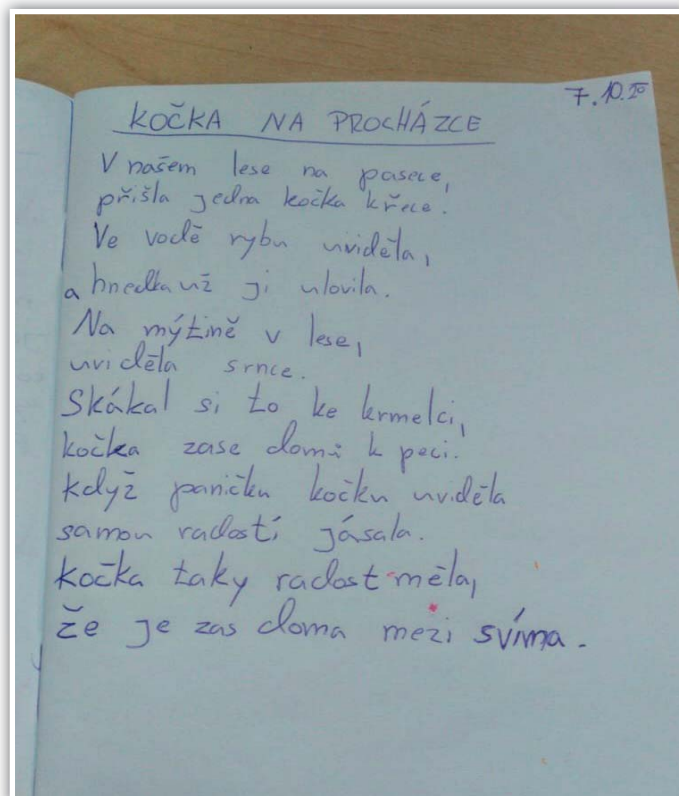 7.10.20
KOČKA NA PROCHÁZCE
V našem lese na pasece,
přišla jedna kočka k řece.
Ve vodě rybu uviděla,
a hnedka už ji ulovila.
Na mýtině v lese,
uviděla srnce.
Skákal si to ke krmelci,
kočka zase domů k peci.
Když paničku kočku uviděla
samou radostí jásala.
Kočka taky radost měla,
že je zas doma mezi svíma.